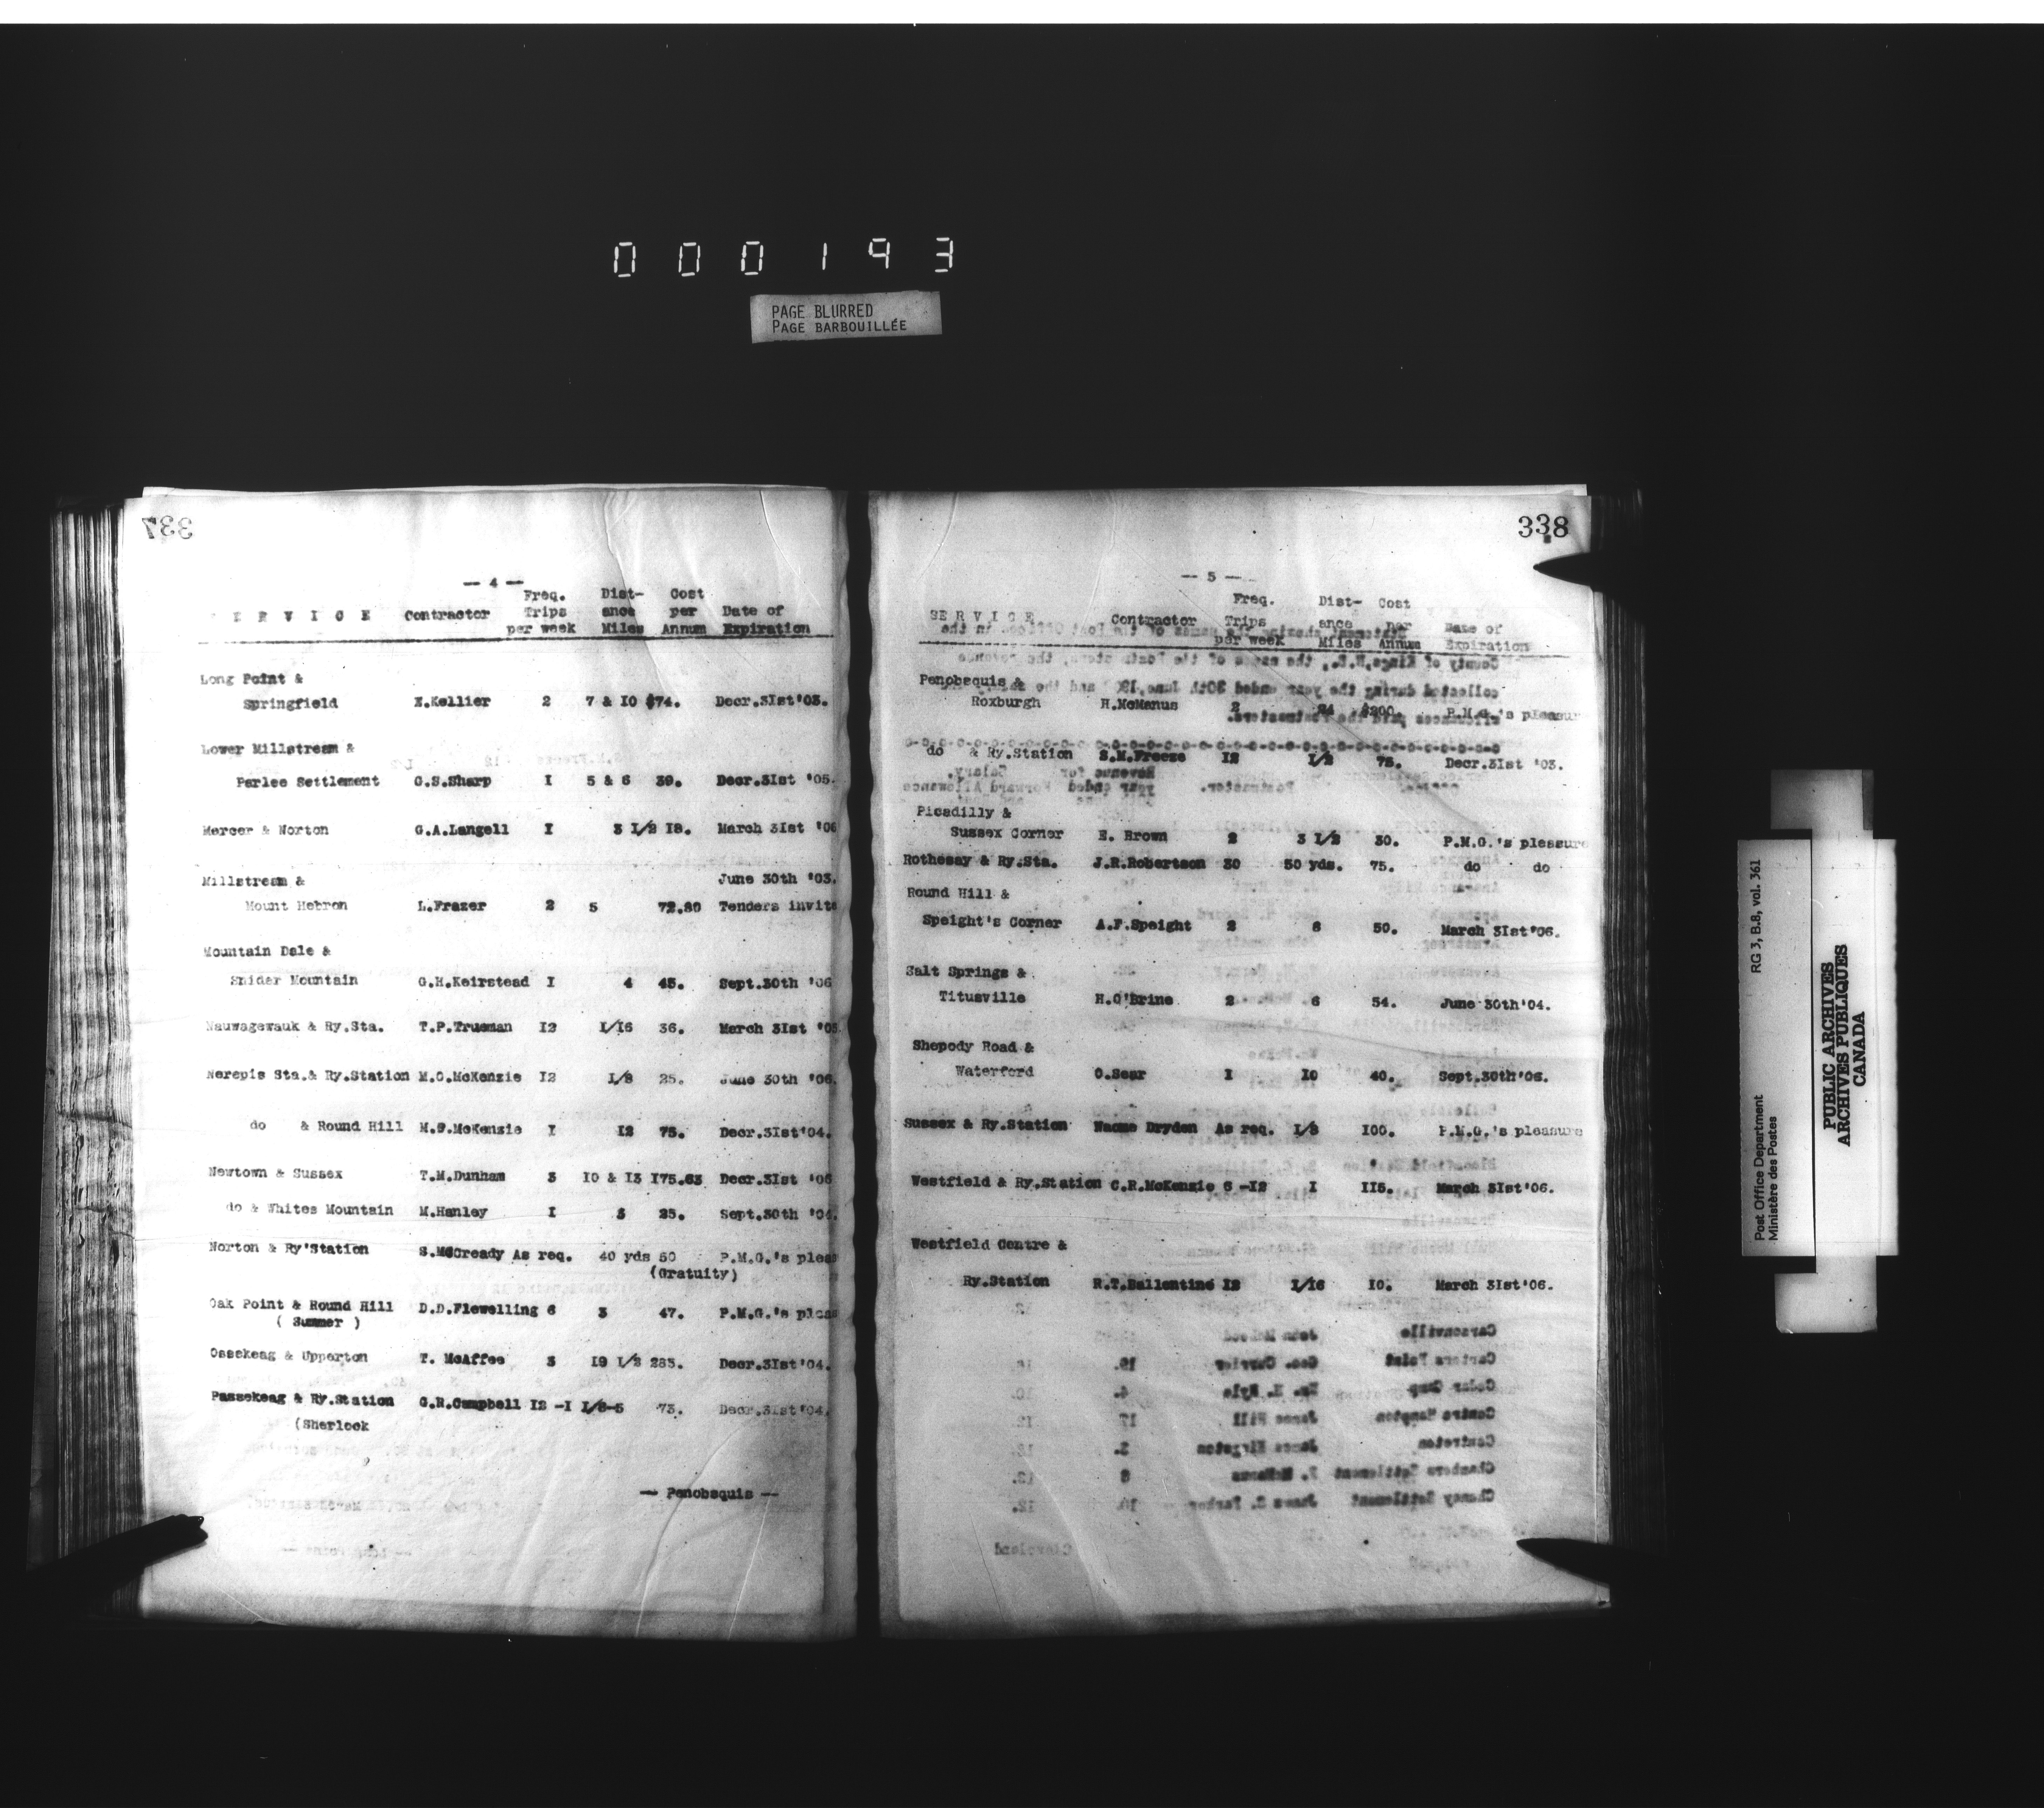 000193
PAGE BLURRED
PAGE BARBOUILLÉE
337
-- 4 --
Freq. Dist- Cost
S E R V I C E Contractor Trips ance per Date of
per week Miles Annum Expiration
Long Point &
Springfield E.Kellier 2 7 & 10 $74. Decr.3Ist'03.
Lower Millstream &
Parlee Settlement G.S.Sharp I 5 & 6 39. Decr.3Ist '05.
Mercer & Norton G.A.Langell I 3 I/2 I8. March 3Ist '06
Millstream & June 30th '03.
Mount Hebron L.Frazer 2 5 72.80 Tenders invite
Mountain Dale &
Snider Mountain G.H.Keirstead I 4 45. Sept.30th '06
Nauwagewauk & Ry.Sta. T.P.Trueman I2 I/I6 36. March 3Ist '05
Nerepis Sta.& Ry.Station M.O.McKenzie I2 I/8 25. June 30th '06.
do & Round Hill M.O.McKenzie I I2 75. Decr.3Ist'04.
Newtown & Sussex T.M.Dunham 3 I0 & I3 I75.63 Decr.3Ist '06
do & Whites Mountain M.Hanley I 3 25. Sept.30th '04.
Norton & Ry'Station S.McCready As req. 40 yds 50 P.M.G.'s pleas
(Gratuity)
Oak Point & Round Hill D.D.Flewelling 6 3 47. P.M.G.'s pleas
( Summer )
Ossekeag & Upperton T. McAffee 3 I9 I/2 283. Decr.3Ist'04.
Passekeag & Ry.Station G.R.Campbell I2 -I I/8-5 73. Decr.3Ist'04.
(Sherlock
-- Penobsquis --
338
-- 5 --
Freq. Dist- Cost
SERVICE Contractor Trips ance per Date of
per week Miles Annum Expiration
Penobsquis &
Roxburgh H.McManus 2 24 $200. P.M.G.'s pleasur
do & Ry.Station S.M.Freeze I2 I/2 75. Decr.3Ist '03.
Picadilly &
Sussex Corner E. Brown 2 3 I/2 30. P.M.G.'s pleasure
Rothesay & Ry.Sta. J.R.Robertson 30 50 yds. 75. do do
Round Hill &
Speight's Corner A.F.Speight 2 8 50. March 3Ist'06.
Salt Springs &
Titusville H.O'Brine 2 6 54. June 30th'04.
Shepody Road &
Waterford O.Sear I I0 40. Sept.30th'06.
Sussex & Ry.Station Naome Dryden As req. I/8 I00. P.M.G.'s pleasure
Westfield & Ry.Station C.R.McKenzie 6 -I2 I II5. March 3Ist'06.
Westfield Centre &
Ry.Station R.T.Ballentine I2 I/I6 I0. March 3Ist'06.
Post Office Department RG 3, B.8, vol. 361
Ministère des Postes
PUBLIC ARCHIVES
ARCHIVES PUBLIQUES
CANADA